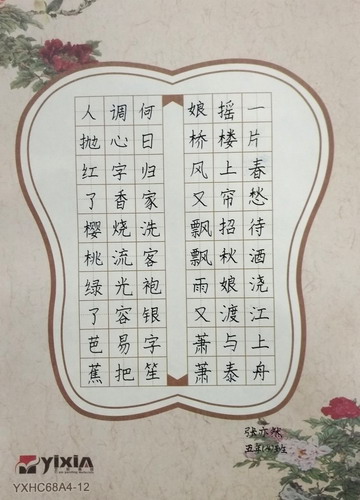 一片春愁待酒浇江上舟
摇楼上帘招秋娘渡与泰
娘桥风又飘飘雨又萧萧
何日归家洗客袍银字笙
调心字香烧流光容易把
人抛红了樱桃绿了芭蕉
张亦
五年班
yixin
YXHC68A4-12